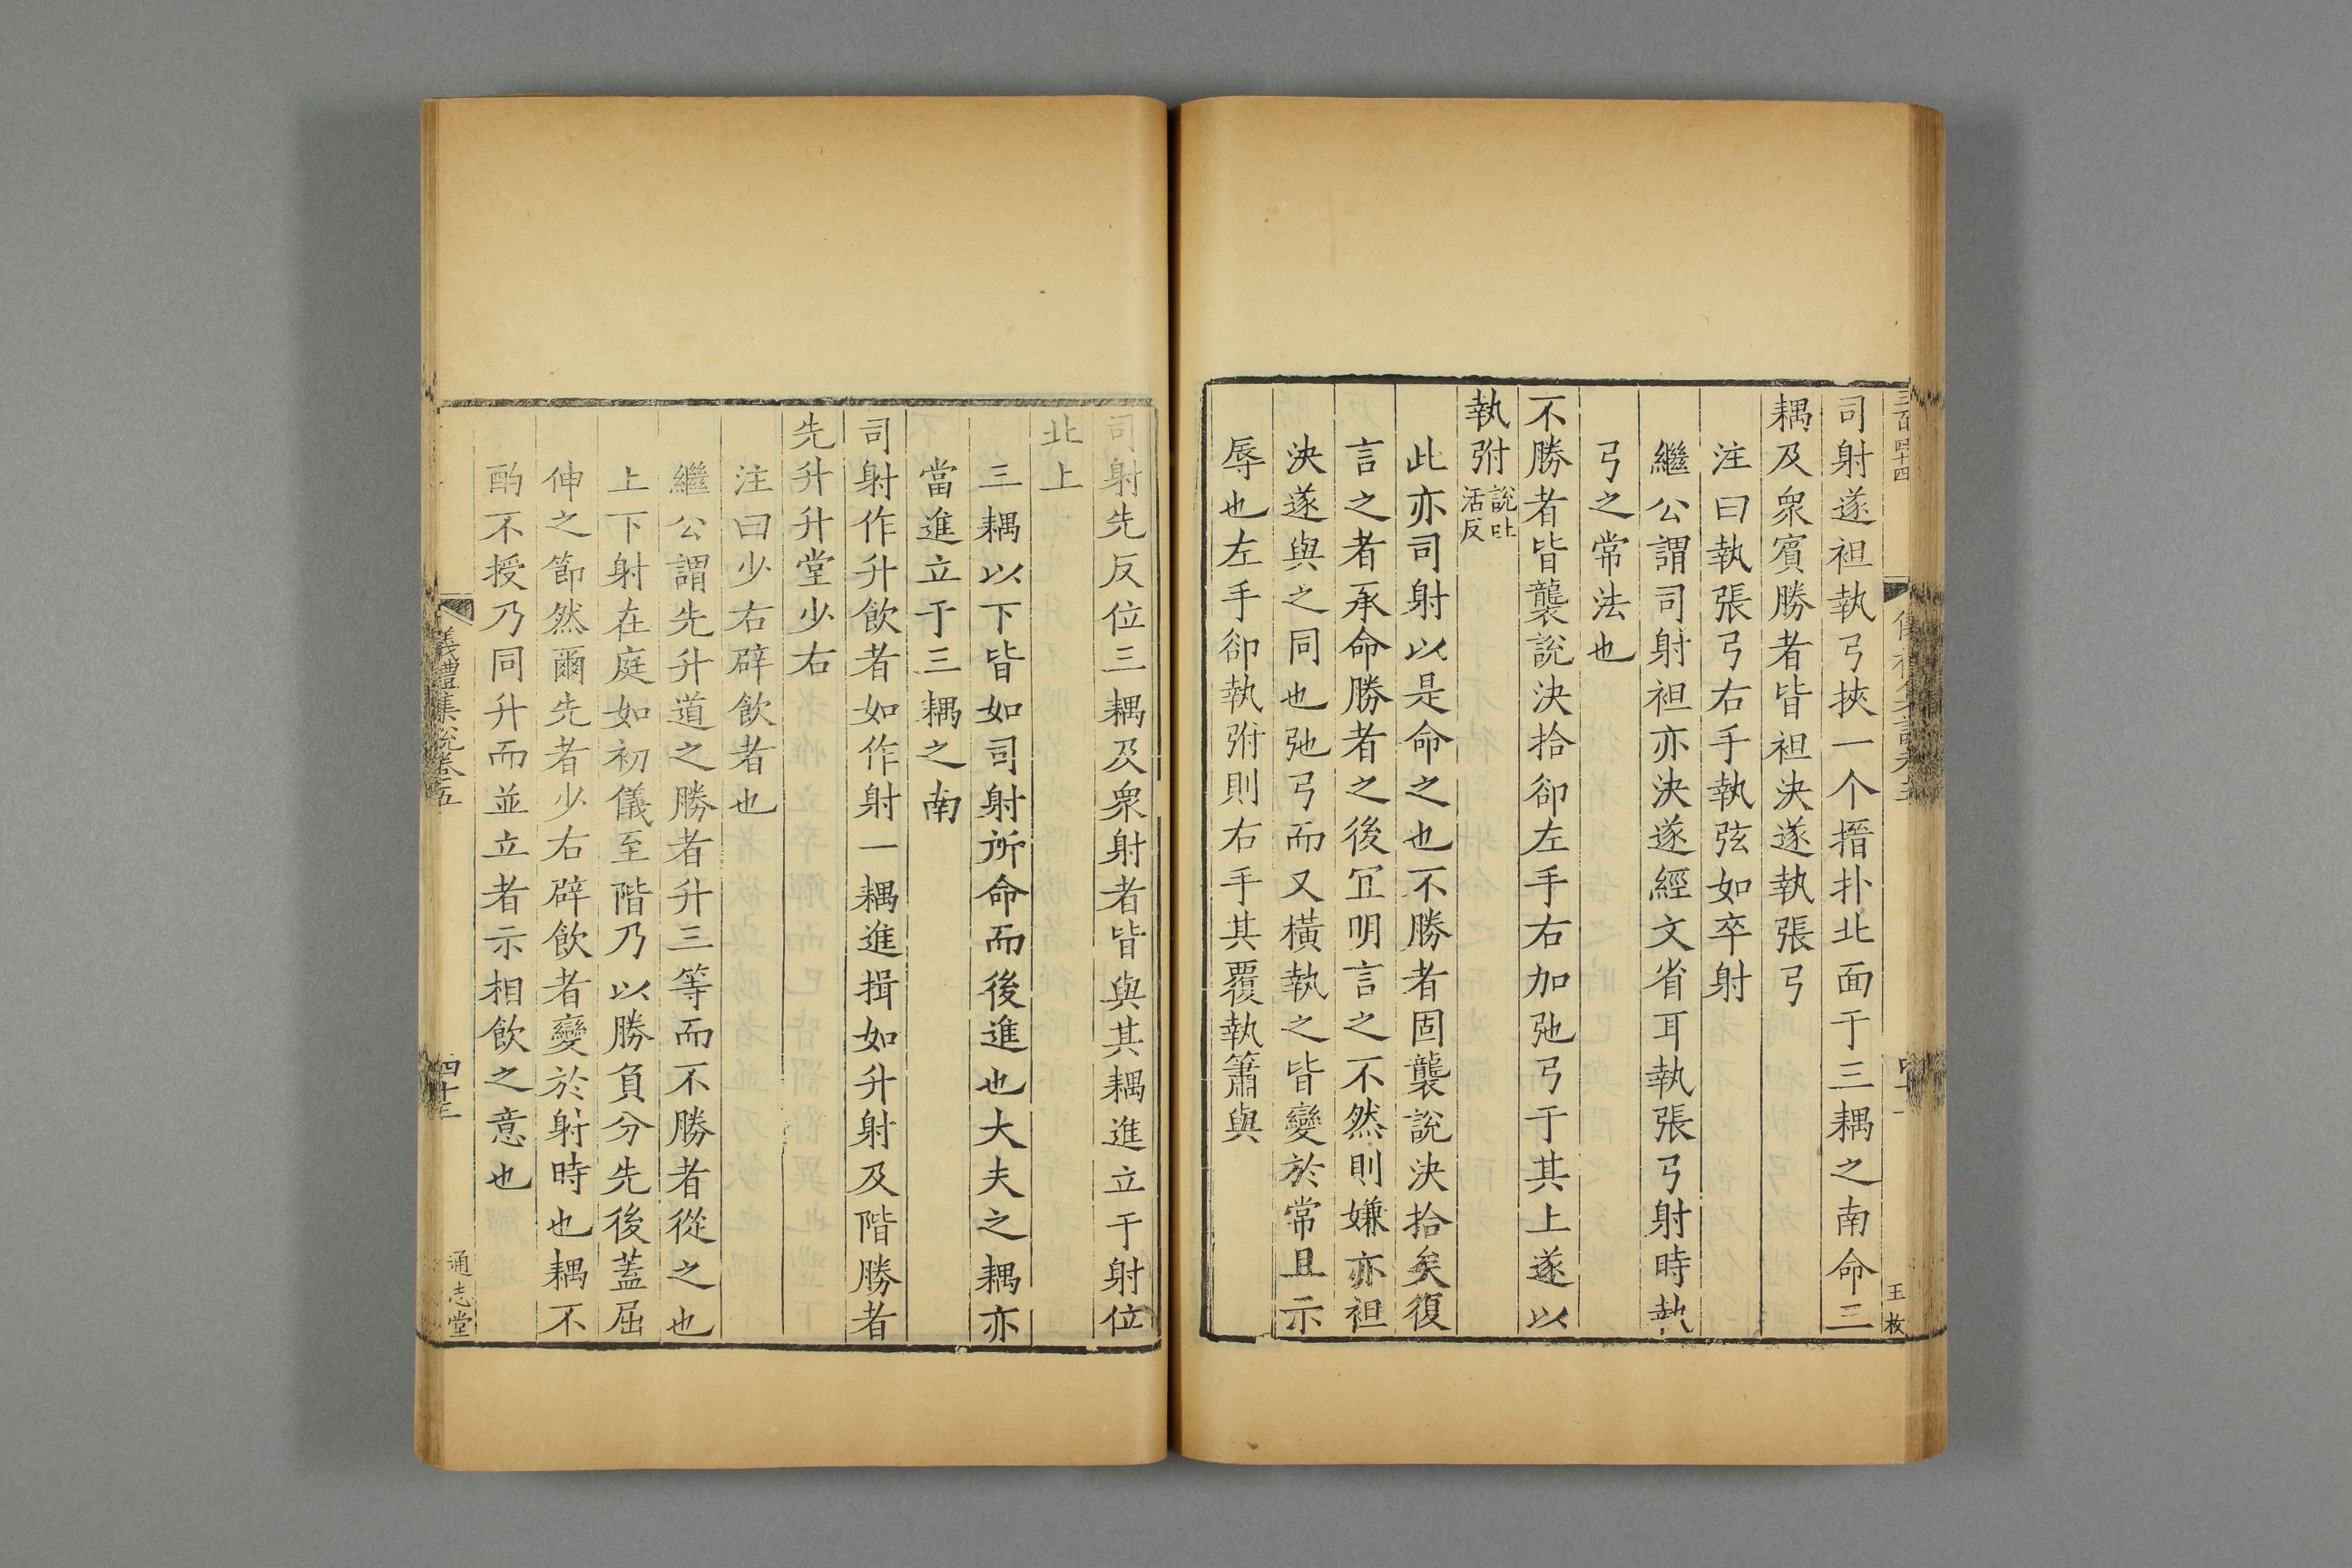 三百四十四
王枚
司射遂袒執弓挾一个搢扑北面于三耦之南命三
耦及衆賓勝者皆袒決遂執張弓
注曰執張弓右手執弦如卒射
繼公謂司射袒亦決遂經文省耳執張弓射時執
弓之常法也
不勝者皆襲說決拾卻左手右加弛弓于其上遂以
執弣說吐活反
此亦司射以是命之也不勝者固襲說決拾矣復
言之者承命勝者之後宜明言之不然則嫌亦袒
決遂與之同也弛弓而又橫執之皆變於常且示
辱也左手卻執弣則右手其覆執簫與
司射先反位三耦及衆射者皆與其耦進立于射位
北上
三耦以下皆如司射所命而後進也大夫之耦亦
當進立于三耦之南
司射作升飲者如作射一耦進揖如升射及階勝者
先升升堂少右
注曰少右辟飲者也
繼公謂先升道之勝者升三等而不勝者從之也
上下射在庭如初儀至階乃以勝負分先後蓋屈
伸之節然爾先者少右辟飲者變於射時也耦不
酌不授乃同升而並立者示相飲之意也
儀禮集說卷五
四十三
通志堂